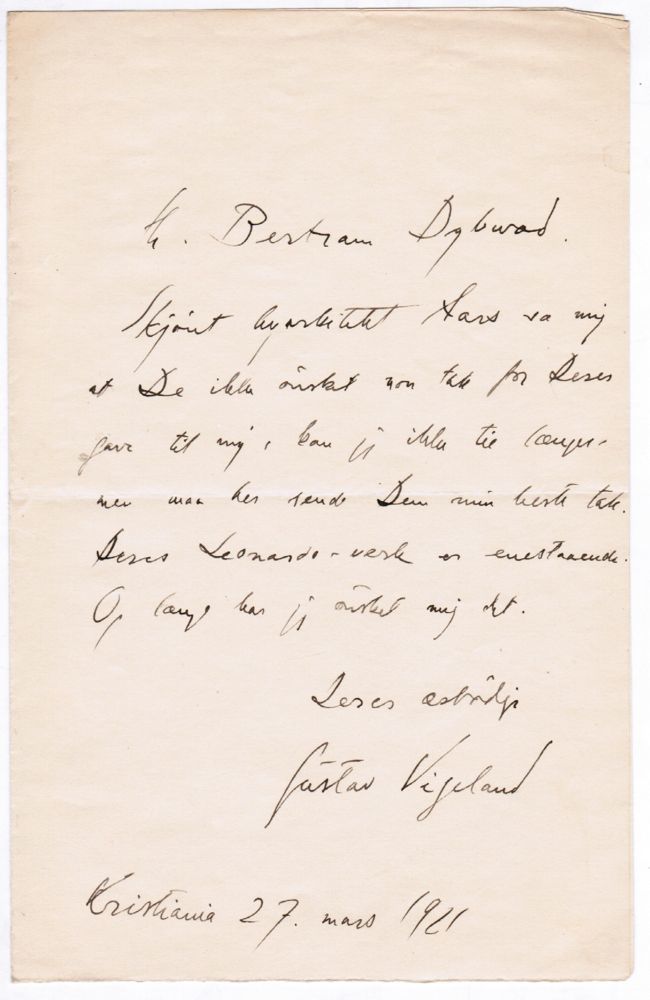 Hr. Bertram Dybwad.
Skjönt arkitekt Aars sa mig
at De ikke önsket noen tak for Deres
gave til mig, kan jeg ikke tie længer,
men maa her sende Dem min beste tak.
Deres Leonardo-verk er enestaaende.
Og længe har jeg önsket mig det.
Deres ærbödige
Gustav Vigeland
Kristiania 27. mars 1921